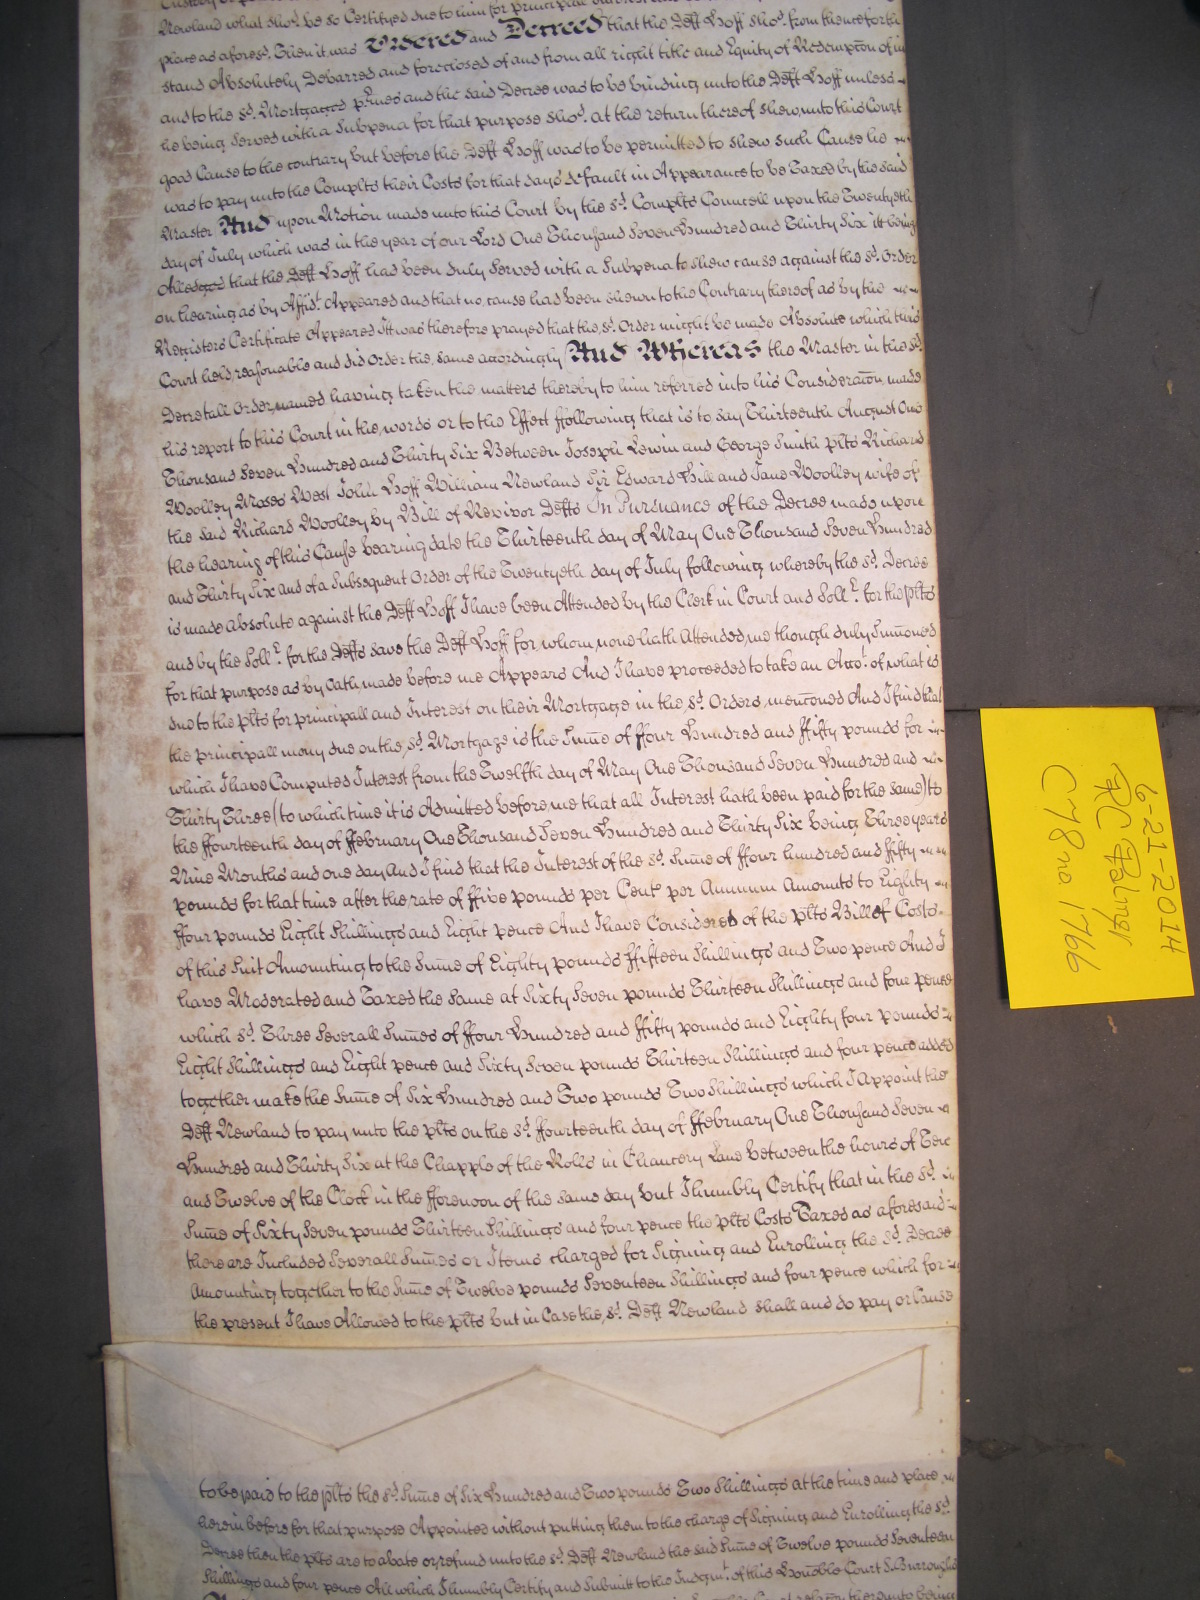 Newland what sho.d be so Certifyed due to him for principal
place as afores.d Then it was Ordered and Decreed that the Deft Hoff sho.d from thenceforth
stand Absolutely Debarred and foreclosed of and from all right title and Equity of Redempton of in
and to the s.d Mortgaged p.rmes and the said Decree was to be binding unto the Deft Hoff unless
he being Served with a Subpena for that purpose sho.d at the return thereof shew unto this Court
good Cause to the contrary but before the Deft Hoff was to be permitted to shew such Cause he
was to pay unto the Complts their Costs for that days default in Appearance to be Taxed by the said
Master And upon Motion made unto this Court by the s.d Complts Councell upon the Twentyeth
day of July which was in the year of our Lord One Thousand Seven Hundred and Thirty Six itt being
Alledged that the Deft Hoff had been duly Served with a Subpena to shew cause against the s.d Order
on hearing as by Affid.t Appeared and that no cause had been shewn to the Contrary thereof as by the
Registers Certificate Appeared Itt was therefore prayed that the s.d Order might be made Absolute which this
Court held reasonable and did Order the same accordingly And Whereas the Master in the s.d
Decretall Order named having taken the matters thereby to him referred into his Consideraton made
his report to this Court in the words or to the Effect ffollowing that is to say Thirteenth August One
Thousand Seven Hundred and Thirty Six Between Joseph Lewin and George Smith plts Richard
Woolley Moses West John Hoff William Newland Sir Edward Hill and Jane Woolley wife of
the said Richard Woolley by Bill of Revivor Defts In Pursuance of the Decree made upon
the hearing of this Cause bearing date the Thirteenth day of May One Thousand Seven Hundred
and Thirty Six and of a Subsequent Order of the Twentyeth day of July following whereby the s.d Decree
is made absolute against the Deft Hoff I have been Attended by the Clerk in Court and Soll.r for the plts
and by the Soll.r for the Defts save the Deft Hoff for whom none hath Attended me though duly Sumoned
for that purpose as by Oath made before me Appears And I have proceeded to take an Acco.t of what is
due to the plts for principall and Interest on their Mortgage in the s.d Orders mentoned And I find that
the principall mony due on the s.d Mortgage is the Sume of ffour Hundred and ffifty pounds for
which I have Computed Interest from the Twelfth day of May One Thousand Seven Hundred and
Thirty Three (to which time it is Admitted before me that all Interest hath been paid for the same) to
the ffourteenth day of ffebruary One Thousand Seven Hundred and Thirty Six being Three years
Nine Months and one day And I find that the Interest of the s.d Sume of ffour hundred and ffifty
pounds for that time after the rate of ffive pounds per Cent per Annum Amounts to Eighty
ffour pounds Eight Shillings and Eight pence And I have Considered of the plts Bill of Costs
of this Suit Amounting to the Sume of Eighty pounds ffifteen Shillings and Two pence And I
have Moderated and Taxed the same at Sixty Seven pounds Thirteen Shillings and four pence
which s.d Three Severall Sumes of ffour Hundred and ffifty pounds and Eighty four pounds
Eight Shillings and Eight pence and Sixty Seven pounds Thirteen Shillings and four pence added
together make the Sume of Six Hundred and Two pounds Two Shillings which I Appoint the
Deft Newland to pay unto the plts on the s.d ffourteenth day of ffebruary One Thousand Seven
Hundred and Thirty Six at the Chapple of the Rolls in Chancery Lane between the hours of Tenn
and Twelve of the Clock in the fforenoon of the same day but I humbly Certify that in the s.d
Sume of Sixty Seven pounds Thirteen Shillings and four pence the plts Costs Taxed as aforesaid
there are Included Severall Sumes or Items charged for Signing and Enrolling the s.d Decree
Amounting together to the Sume of Twelve pounds Seventeen Shillings and four pence which for
the present I have Allowed to the plts but in Case the s.d Deft Newland shall and do pay or Cause
to be paid to the plts the s.d Sume of Six Hundred and Two pounds Two Shillings at the time and place
herein before for that purpose Appointed without putting them to the charge of Signing and Enrolling the s.d
Decree then the plts are to abate or refund unto the s.d Deft Newland the said Sume of Twelve pounds Seventeen
Shillings and four pence All which I humbly Certify and Submitt to the Judgm.t of this Honoble Court S: Burroughs
6-21-2014
RC Palmer
C78 no. 1766